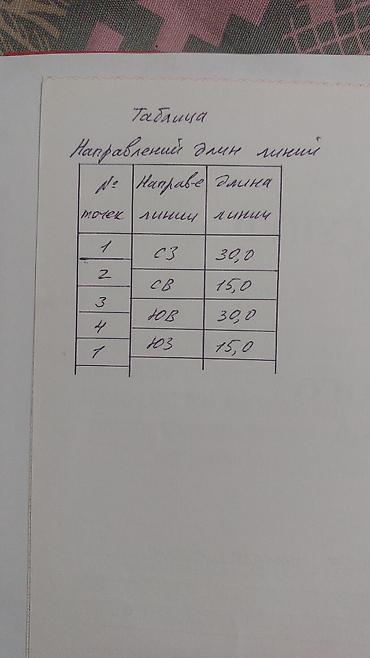 Таблица
Направлений длин линий
№ точек Направ-е линии Длина линии
1
СЗ 30,0
2
СВ 15,0
3
ЮВ 30,0
4
ЮЗ 15,0
1